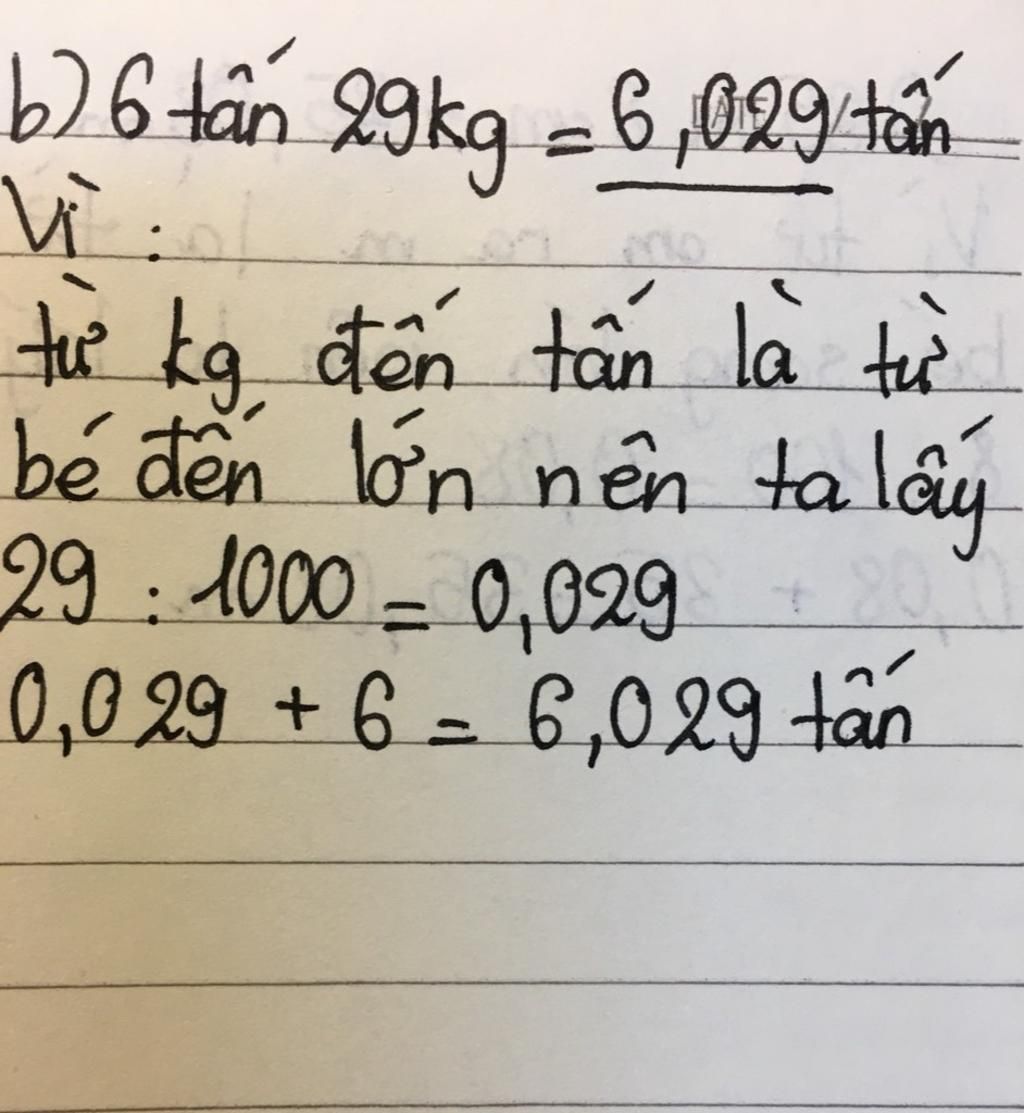 b) 6 tấn 29kg = 6,029 tấn
Vì :
từ kg đến tấn là từ
bé đến lớn nên ta lấy
29 : 1000 = 0,029
0,029 + 6 = 6,029 tấn